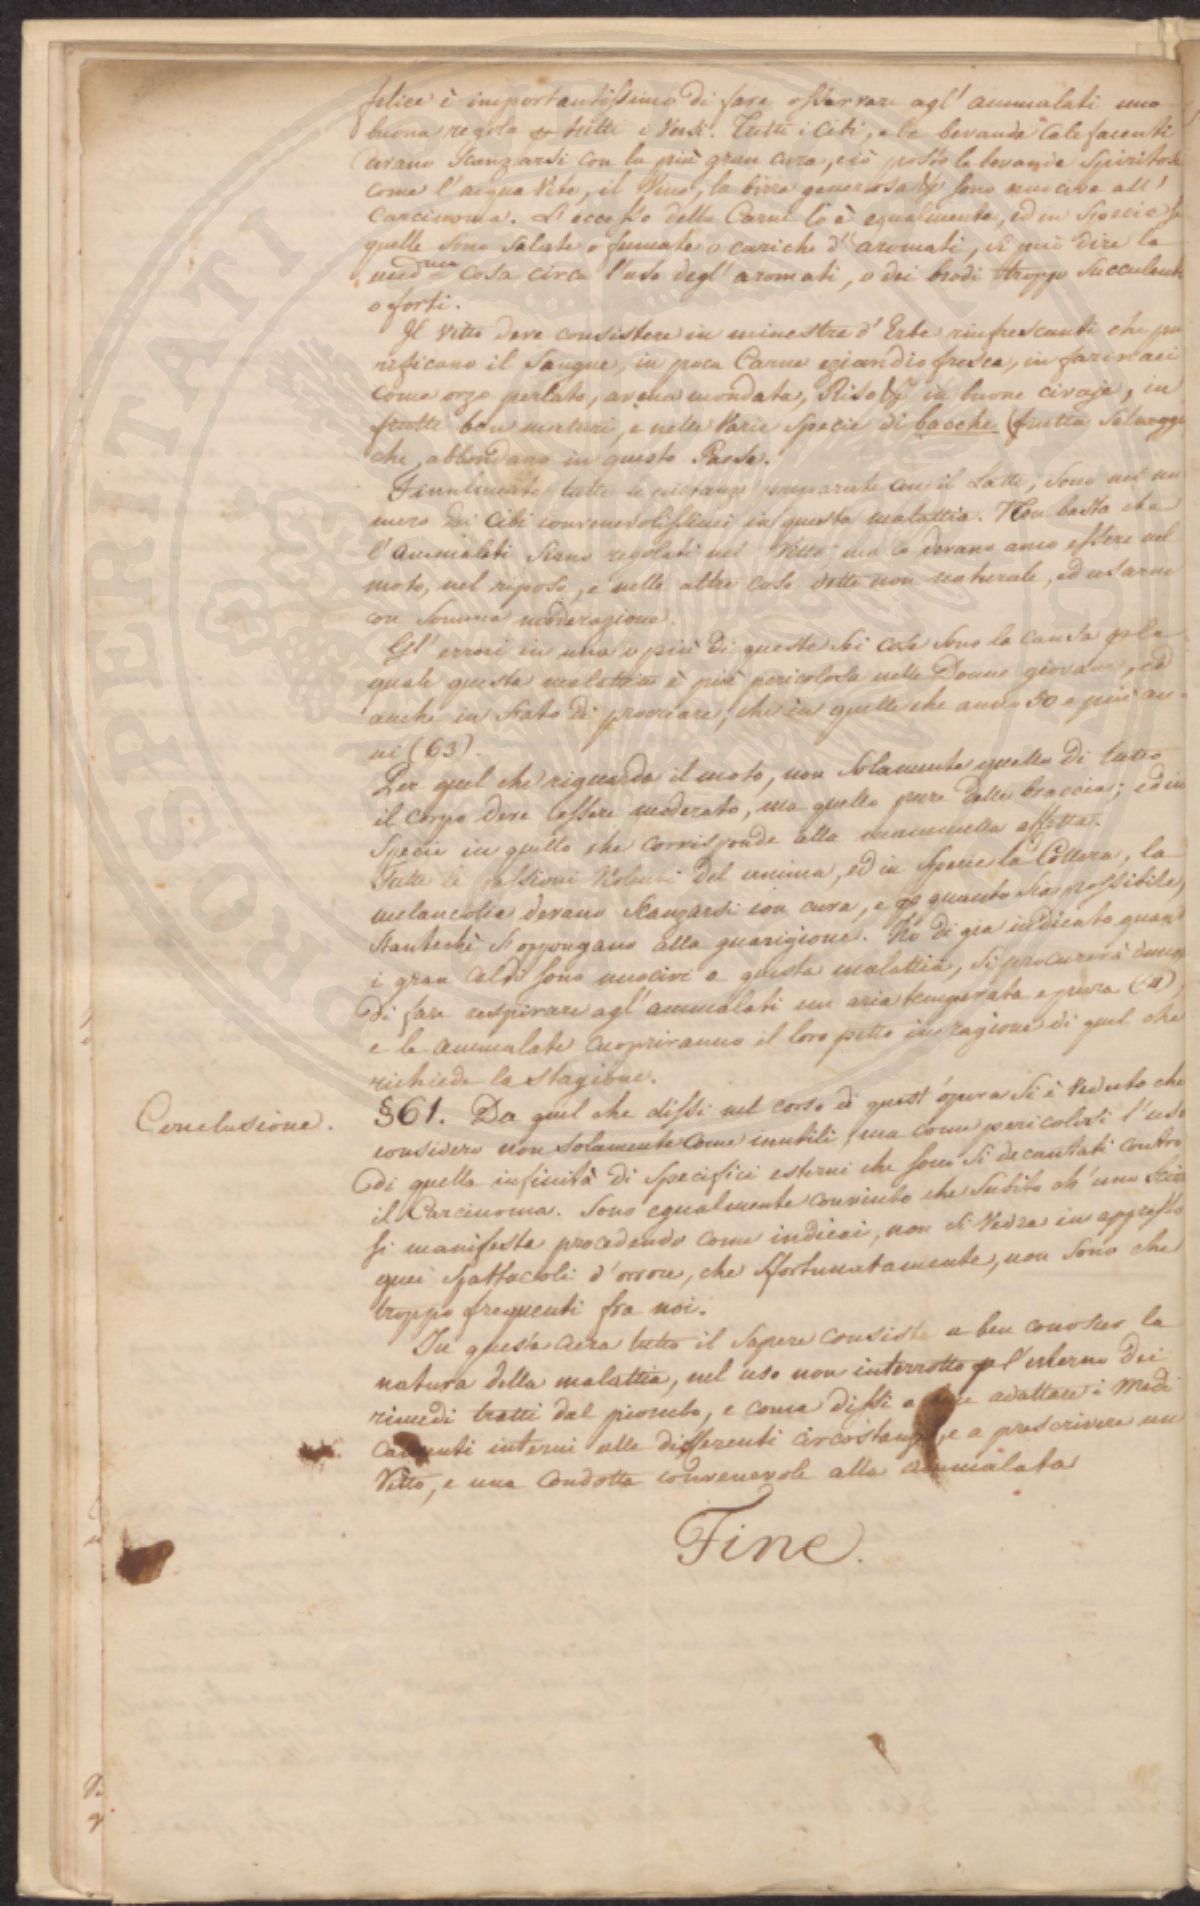 felice è importantissimo di fare osservare agl' ammalati una
buona regola p tutti i versi. Tutti i Cibi, e le bevande Calefacenti
devano scanzarsi con la più gran cura, ciò posto le bevande spiritose
come l'acqua Vite, il Vino, la birra generosa & sono nuocive all'
Carcinoma. L'eccesso della Carne lo è egualmente, ed in specie se
quelle sono salate o fumate o cariche d'aromati, si può dire la
med.ma cosa circa l'uso degl' aromati, o dei brodi troppo succulenti
o forti.
Il Vitto deve consistere in minestre d'Erbe rinfrescanti che pu
rificano il Sangue, in poca Carne eziandio fresca, in farinacei
come orzo perlato, avena mondata, Riso & in buone civaje, in
frutti ben maturi, e nelle Varie Specie di bacche (frutta selvaggi
che abbondano in questo Paese.
Finalmente tutte le pietanze preparate con il Latte, sono nel nu
mero dei Cibi convenevolissimi in questa malattia. Non basta che
l'Ammalati siano regolati nel Vitto, ma lo devano anco essere nel
moto, nel riposo, e nelle altre cose dette non naturale, ed usarne
con somma moderazione.
Gl' errori in una o più di queste sei cose sono la causa p la
quale questa malattia è più pericolosa nelle Donne giovane, ed
anche in stato di procreare, che in quelle che anno 50 e più an-
ni (63).
Per quel che riguarda il moto, non solamente quello di tutto
il corpo deve essere moderato, ma quello pure delle braccia; ed in
Specie in quello che corrisponde alla mammella affetta.
Tutte le passioni Violenti del anima, ed in Specie la Collera, la
melancolia devano scanzarsi con cura, e p quanto sia possibile,
stantechè s'oppongano alla guarigione. Ho di gia indicato quant
i gran caldi sono nuocivi a questa malattia, si procurerà dunq
di fare respirare agl' ammalati un aria temperata e pura (4),
e le ammalate cuopriranno il loro petto in ragione di quel che
richiede la stagione.
Conclusione.
§61. Da quel che dissi nel corso di quest' opera si è veduto che
considero non solamente come inutili, ma come pericolosi l'uso
di quella infinità di Specifici esterni che sono si decantati contro
il Carcinoma. Sono egualmente convinto che subito ch' uno Scir
si manifesta procedendo come indicai, non si Vedra in appresso
quei spettacoli d'orrore, che sfortunatamente, non sono che
troppo frequenti fra noi.
In questa cura tutto il sapere consiste a ben conoscer la
natura della malattia, nel uso non interrotto p l'esterno dei
rimedi tratti dal piombo, e come dissi a adattare i Medi
camenti interni alle differenti circostanze, e a prescrivere un
Vitto, e una Condotta convenevole alla ammalata
Fine.